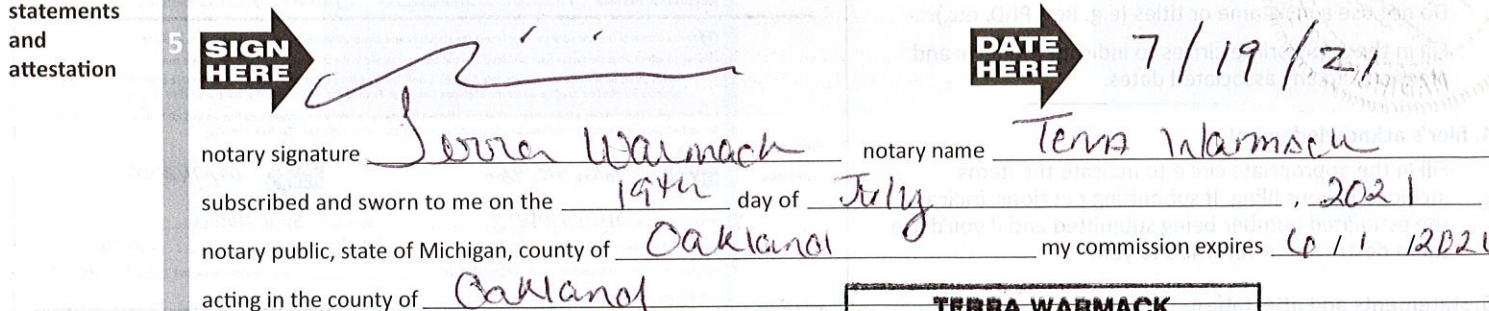 statements
and
attestation
5 SIGN HERE DATE HERE 7/19/21
notary signature Terra Warmack notary name Terra Warmack
subscribed and sworn to me on the 19th day of July , 2021
notary public, state of Michigan, county of Oakland my commission expires
acting in the county of Oakland
TERRA WARMACK